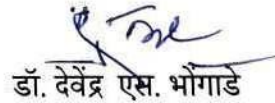 डॉ. देवेंद्र एस. भोंगाडे